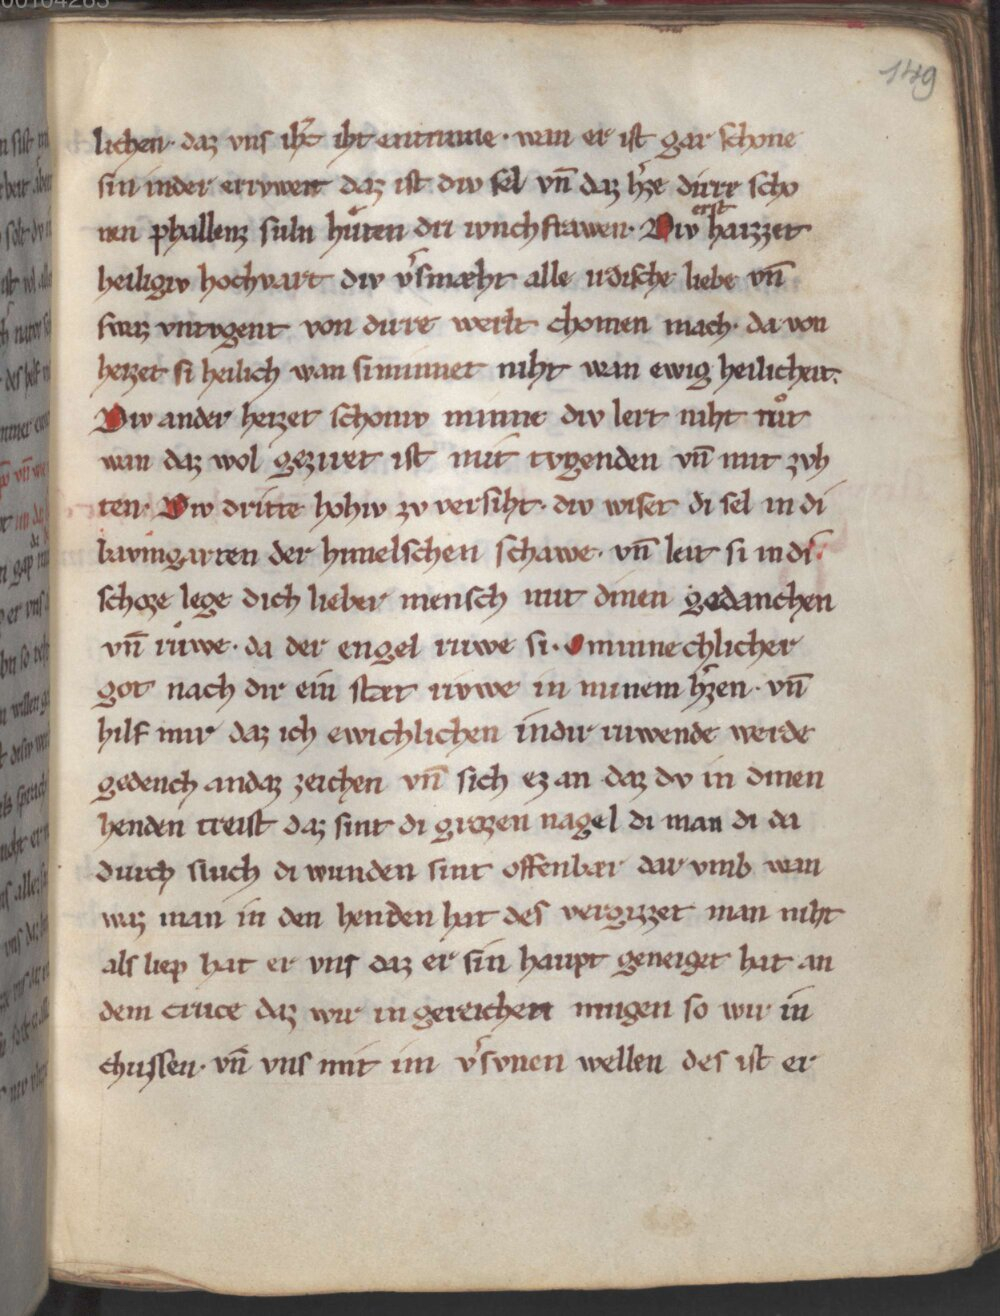 149
lichen· daz vns ihc̄ iht entrinne· wan er ist gar schone
sin inder errvwent daz ist div sel vn̄ daz hͤze dirre scho
nen phallenz suln hu̍ten dri ivnchfrawen· Div erst haizzet
heiligiv hochvart div v̾smæht alle irdische liebe vn̄
swaz vntvgent von dirre werlt chomen mach· da von
heizet si heilich wan siminnet niht wan ewig heilicheit.
Div ander heizet schoniv minne div lert niht nuͦt
wan daz wol geziret ist mit tvgenden vn̄ mit zvh
ten· Div dritte hohiv zv versiht· div wiset di sel in di
bavmgarten der himelschen schawe· vn̄ leit si in di
schoze lege dich lieber mensch mit dinen gedanchen
vn̄ ruwe· da der engel ruwe si· O minnechlicher
got nach dir ein stæt rivwe in minem h̾zen· vn̄
hilf mir daz ich ewichlichen indir ruwende werde
gedench andaz zeichen vn̄ sich ez an daz dv in dinen
henden treist daz sint di grozen nagel di man di da
durch sluch di wunden sint offenbær dar vmb wan
waz man in den henden hat des vergizzet man niht
als liep hat er vns daz er sin haupt geneiget hat an
dem cruce daz wir in gereichen mugen so wir in
chussen· vn̄ vns mit im v̾svnen wellen des ist er